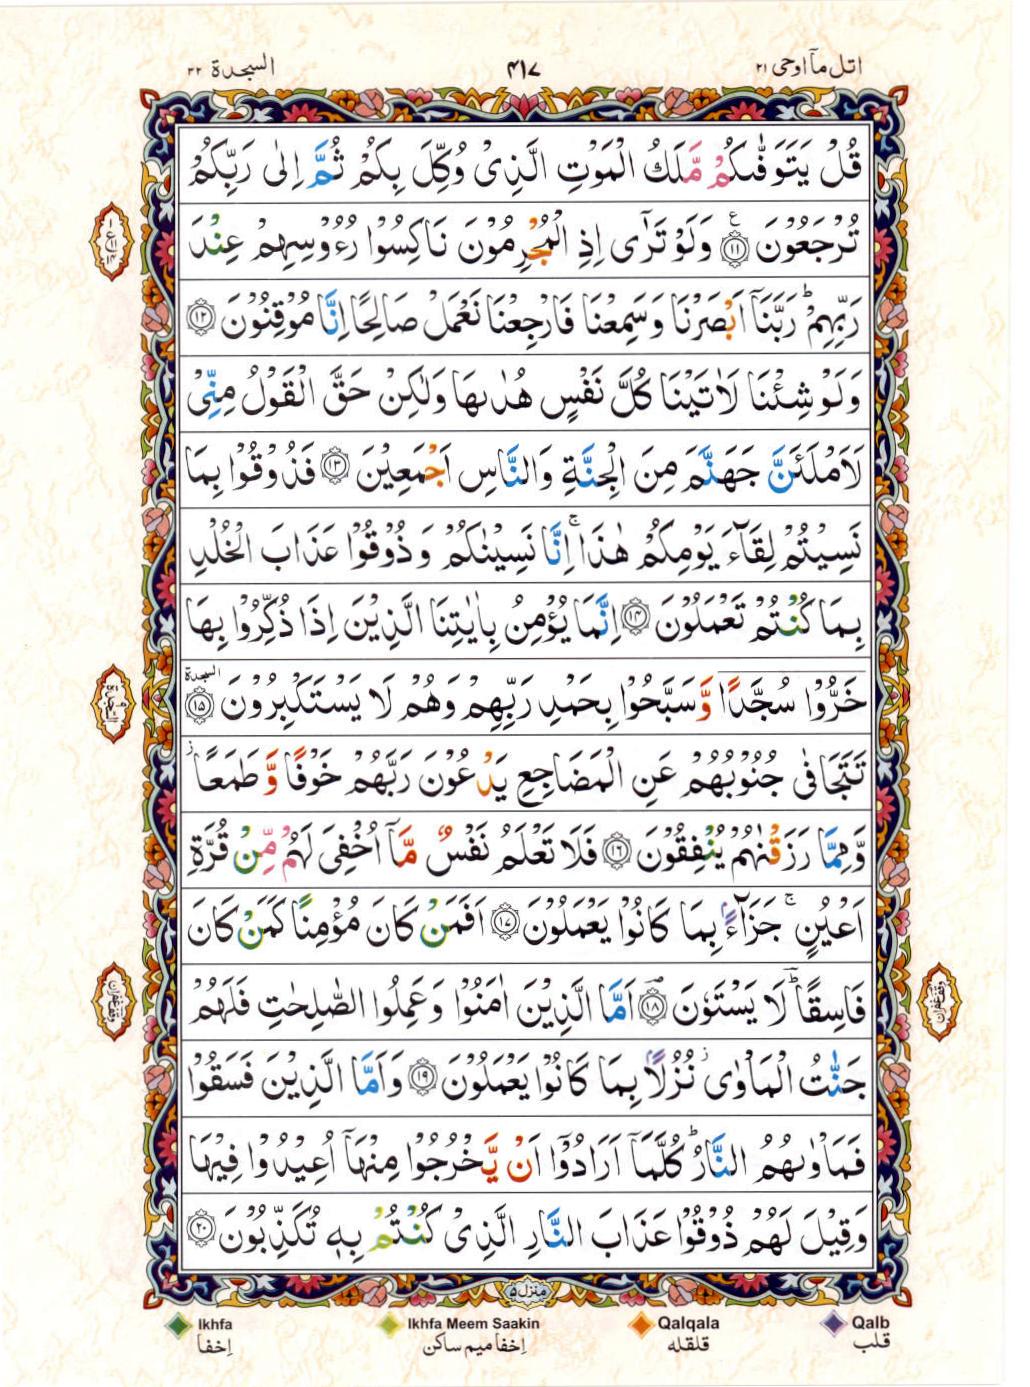 اتل ماۤ اوحی ۲۱
۴۱۷
السجدة ۳۲
قُلْ يَتَوَفّٰىكُمْ مَّلَكُ الْمَوْتِ الَّذِىْ وُكِّلَ بِكُمْ ثُمَّ اِلٰى رَبِّكُمْ
تُرْجَعُوْنَ ﴿۱۱﴾ ع وَلَوْ تَرٰٓى اِذِ الْمُجْرِمُوْنَ نَاكِسُوْا رُءُوْسِهِمْ عِنْدَ
رَبِّهِمْ ؕ رَبَّنَاۤ اَبْصَرْنَا وَسَمِعْنَا فَارْجِعْنَا نَعْمَلْ صَالِحًا اِنَّا مُوْقِنُوْنَ ﴿۱۲﴾
وَلَوْ شِئْنَا لَاٰتَيْنَا كُلَّ نَفْسٍ هُدٰٮهَا وَلٰكِنْ حَقَّ الْقَوْلُ مِنِّىْ
لَاَمْلَئَنَّ جَهَنَّمَ مِنَ الْجِنَّةِ وَالنَّاسِ اَجْمَعِيْنَ ﴿۱۳﴾ فَذُوْقُوْا بِمَا
نَسِيْتُمْ لِقَآءَ يَوْمِكُمْ هٰذَا ۚ اِنَّا نَسِيْنٰكُمْ وَ ذُوْقُوْا عَذَابَ الْخُلْدِ
بِمَا كُنْتُمْ تَعْمَلُوْنَ ﴿۱۴﴾ اِنَّمَا يُؤْمِنُ بِاٰيٰتِنَا الَّذِيْنَ اِذَا ذُكِّرُوْا بِهَا
خَرُّوْا سُجَّدًا وَّسَبَّحُوْا بِحَمْدِ رَبِّهِمْ وَهُمْ لَا يَسْتَكْبِرُوْنَ ﴿۱۵﴾ السجدة
تَتَجَافٰى جُنُوْبُهُمْ عَنِ الْمَضَاجِعِ يَدْعُوْنَ رَبَّهُمْ خَوْفًا وَّ طَمَعًا ز
وَّمِمَّا رَزَقْنٰهُمْ يُنْفِقُوْنَ ﴿۱۶﴾ فَلَا تَعْلَمُ نَفْسٌ مَّاۤ اُخْفِىَ لَهُمْ مِّنْ قُرَّةِ
اَعْيُنٍ ۚ جَزَآءًۢ بِمَا كَانُوْا يَعْمَلُوْنَ ﴿۱۷﴾ اَفَمَنْ كَانَ مُؤْمِنًا كَمَنْ كَانَ
فَاسِقًا ؕ لَا يَسْتَوٗنَ ﴿۱۸﴾ اَمَّا الَّذِيْنَ اٰمَنُوْا وَعَمِلُوا الصّٰلِحٰتِ فَلَهُمْ
جَنّٰتُ الْمَاْوٰى ز نُزُلًاۢ بِمَا كَانُوْا يَعْمَلُوْنَ ﴿۱۹﴾ وَاَمَّا الَّذِيْنَ فَسَقُوْا
فَمَاْوٰٮهُمُ النَّارُ ؕ كُلَّمَاۤ اَرَادُوْۤا اَنْ يَّخْرُجُوْا مِنْهَاۤ اُعِيْدُوْا فِيْهَا
وَقِيْلَ لَهُمْ ذُوْقُوْا عَذَابَ النَّارِ الَّذِىْ كُنْتُمْ بِهٖ تُكَذِّبُوْنَ ﴿۲۰﴾
السجدة
وقف غفران
وقف غفران
منزل ۵
Ikhfa
Ikhfa Meem Saakin
Qalqala
Qalb
اِخفا
اِخفا میم ساکن
قلقله
قلب